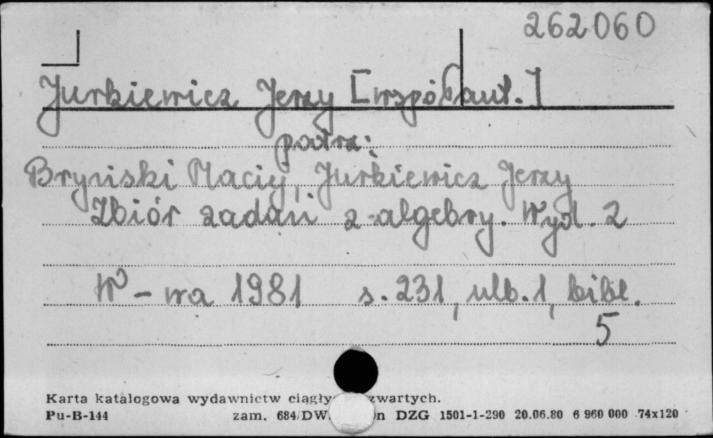 262060
Jurkiewicz Jerzy [współaut.]
patrz:
Bryński Maciej, Jurkiewicz Jerzy
Zbiór zadań z algebry. Wyd. 2
W-wa 1981 s. 231, ulb. 1, bibl.
5
Karta katalogowa wydawnictw ciągły zwartych.
Pu-B-144 zam. 684/DW. n DZG 1501-1-290 20.06.80 6 960 000 74x120